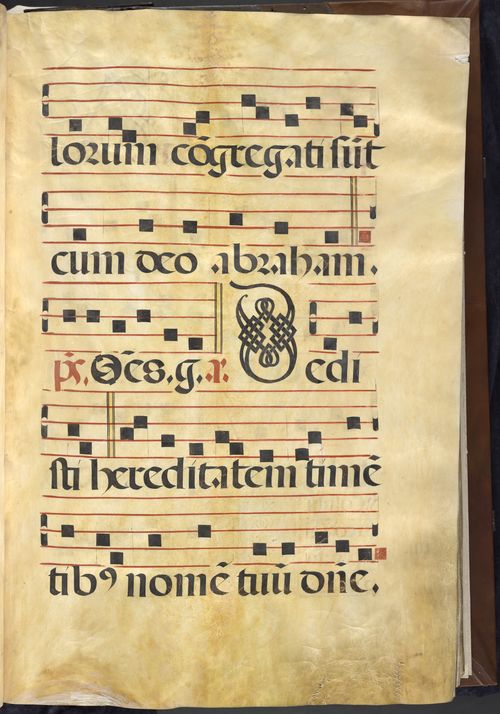 lorum cōgregati sūt
cum deo abraham.
ps. Oēs. g. a. Dedi
sti hereditatem timē
tibꝰ nomē tuū dn̄e.